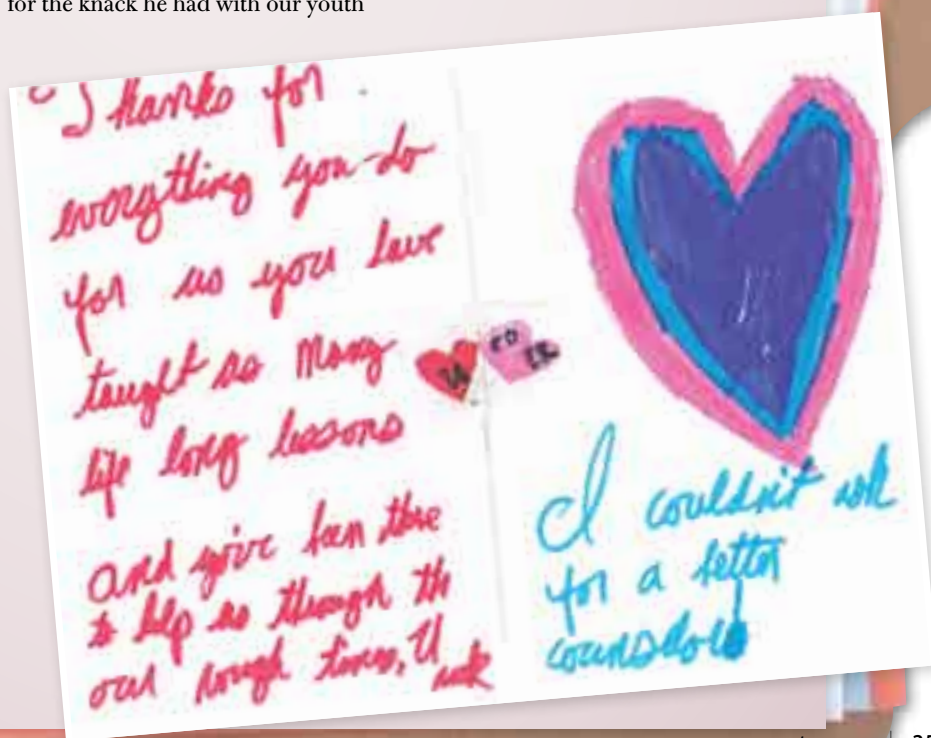 for the knack he had with our youth
Thanks for
everything you do
for us you have
taught us many
life long lessons
and you've been there
to help us through th
our rough times, U
U
I couldn't ask
for a better
counsdor